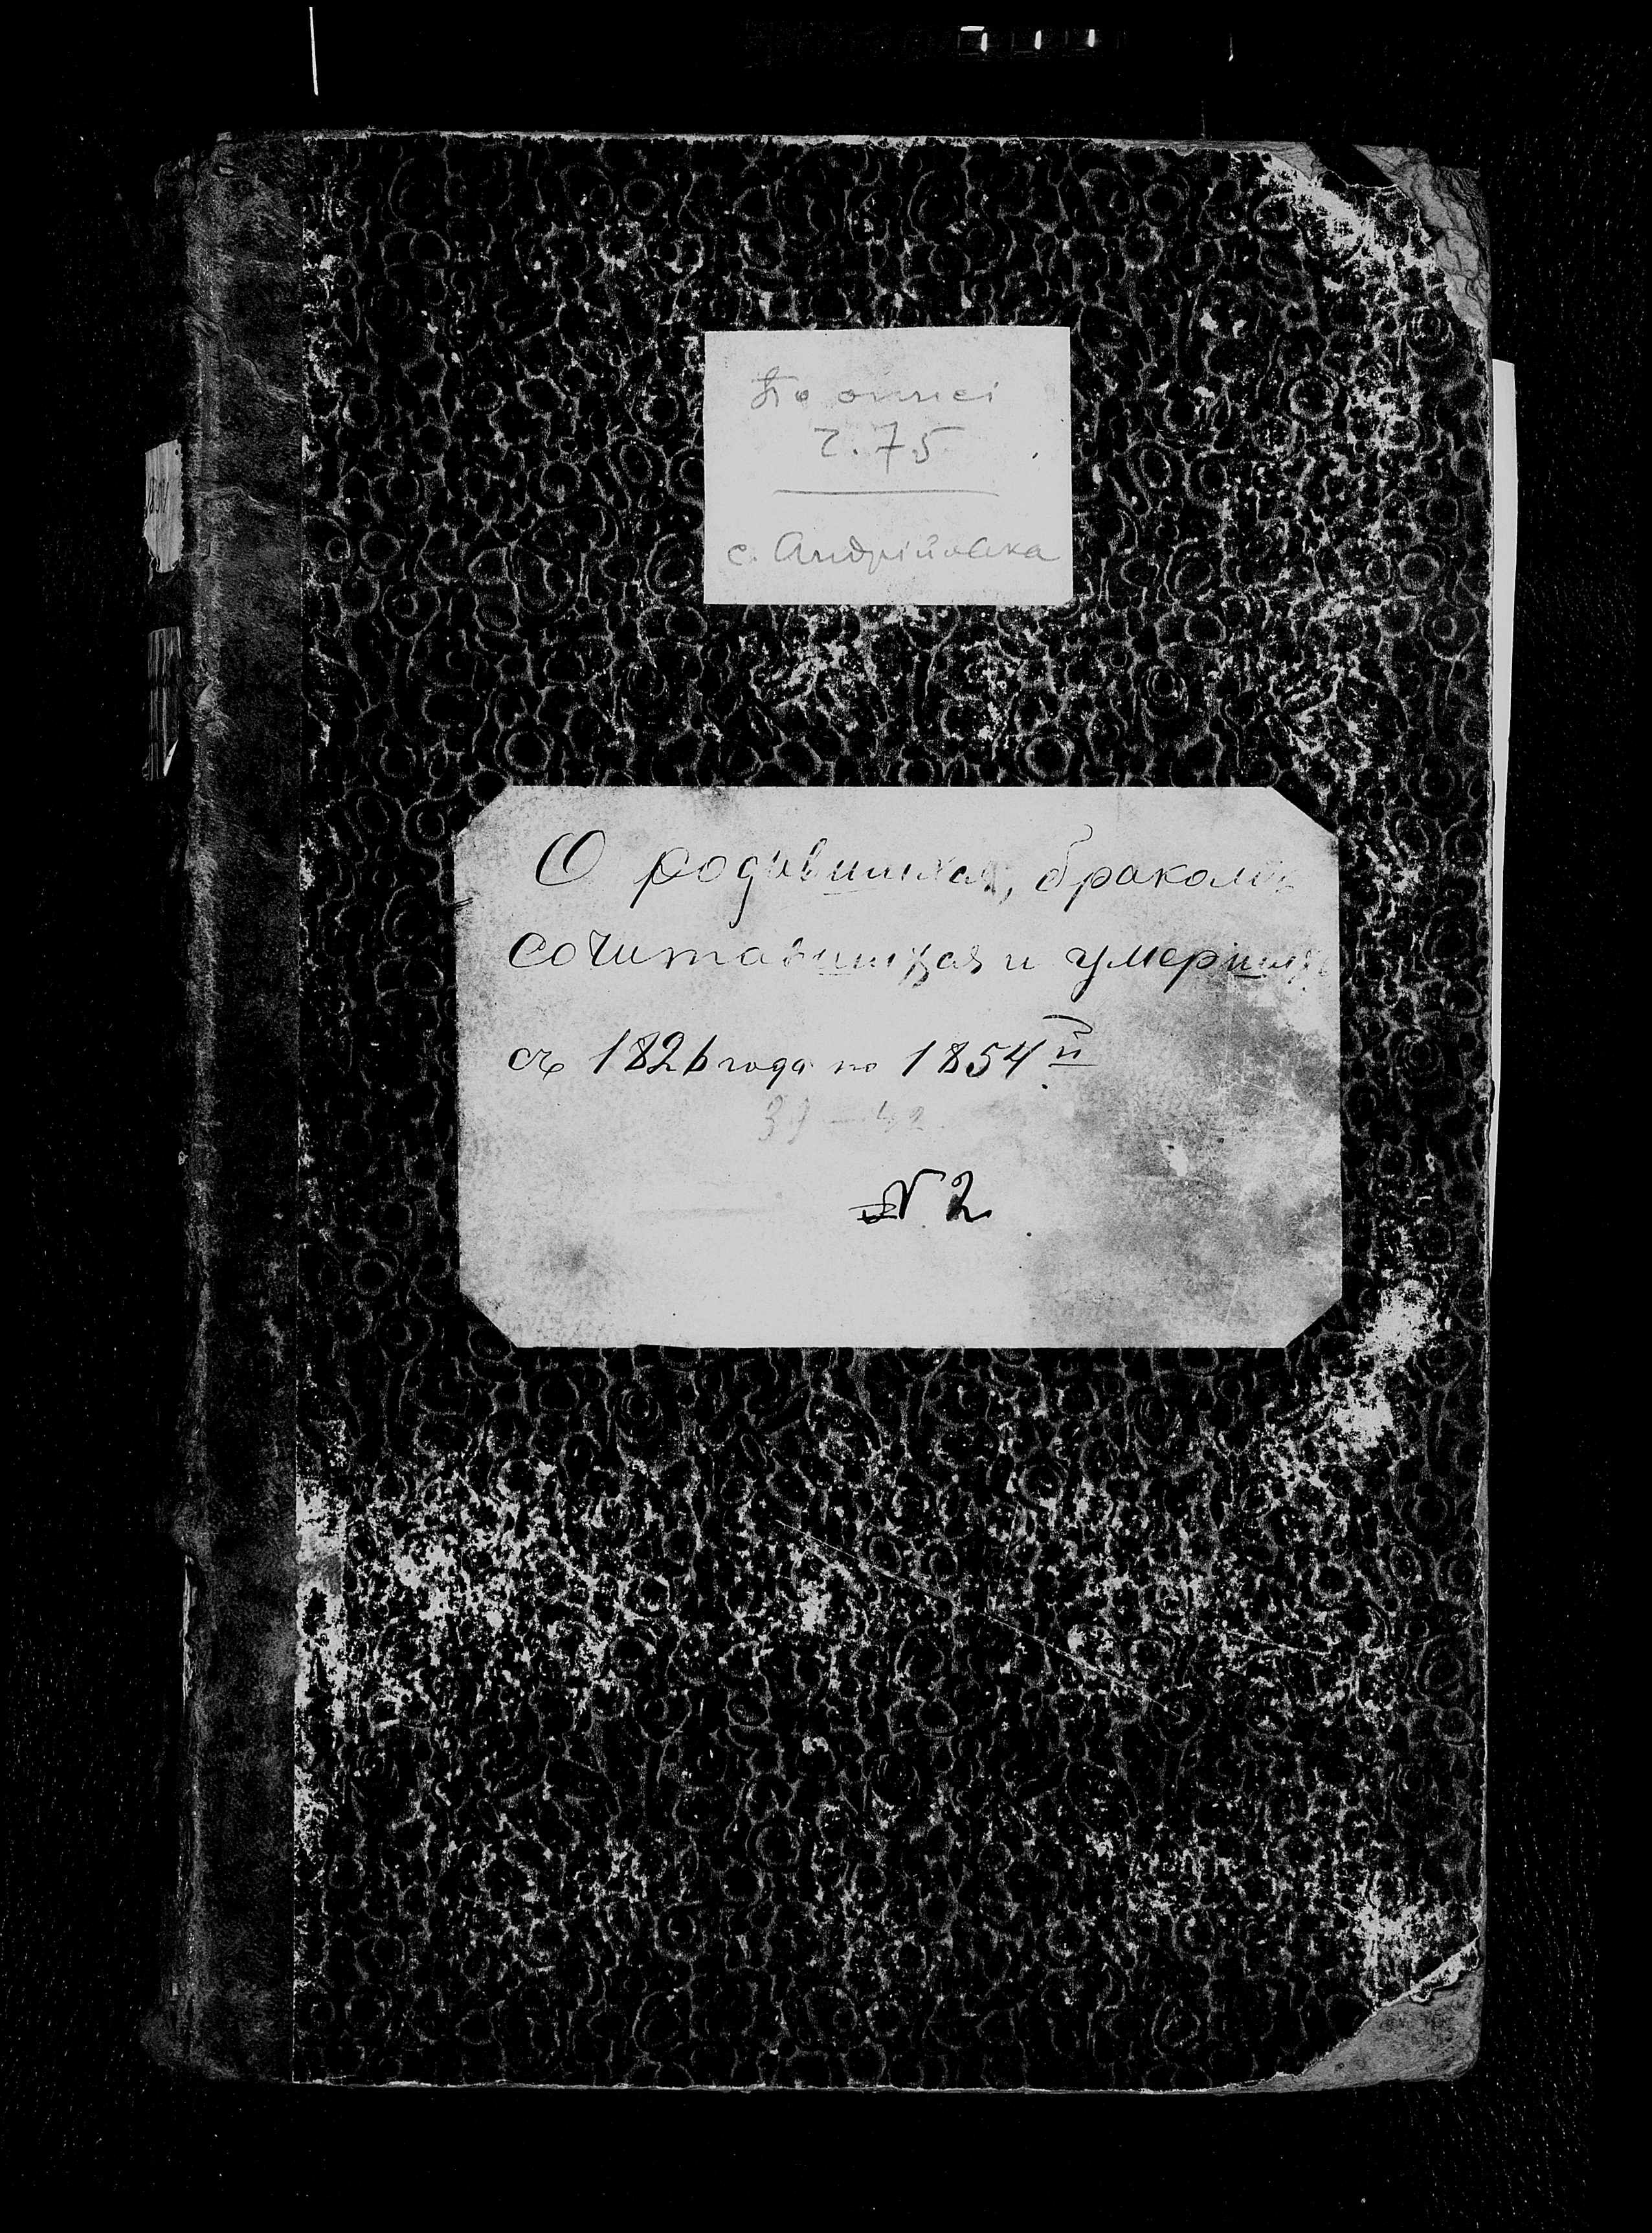 По описі
ч. 75
с. Андріівка
О родившихся, бракомъ
сочитавшихся и умершихъ
съ 1826 года по 1854й
39 — 42
№ 2